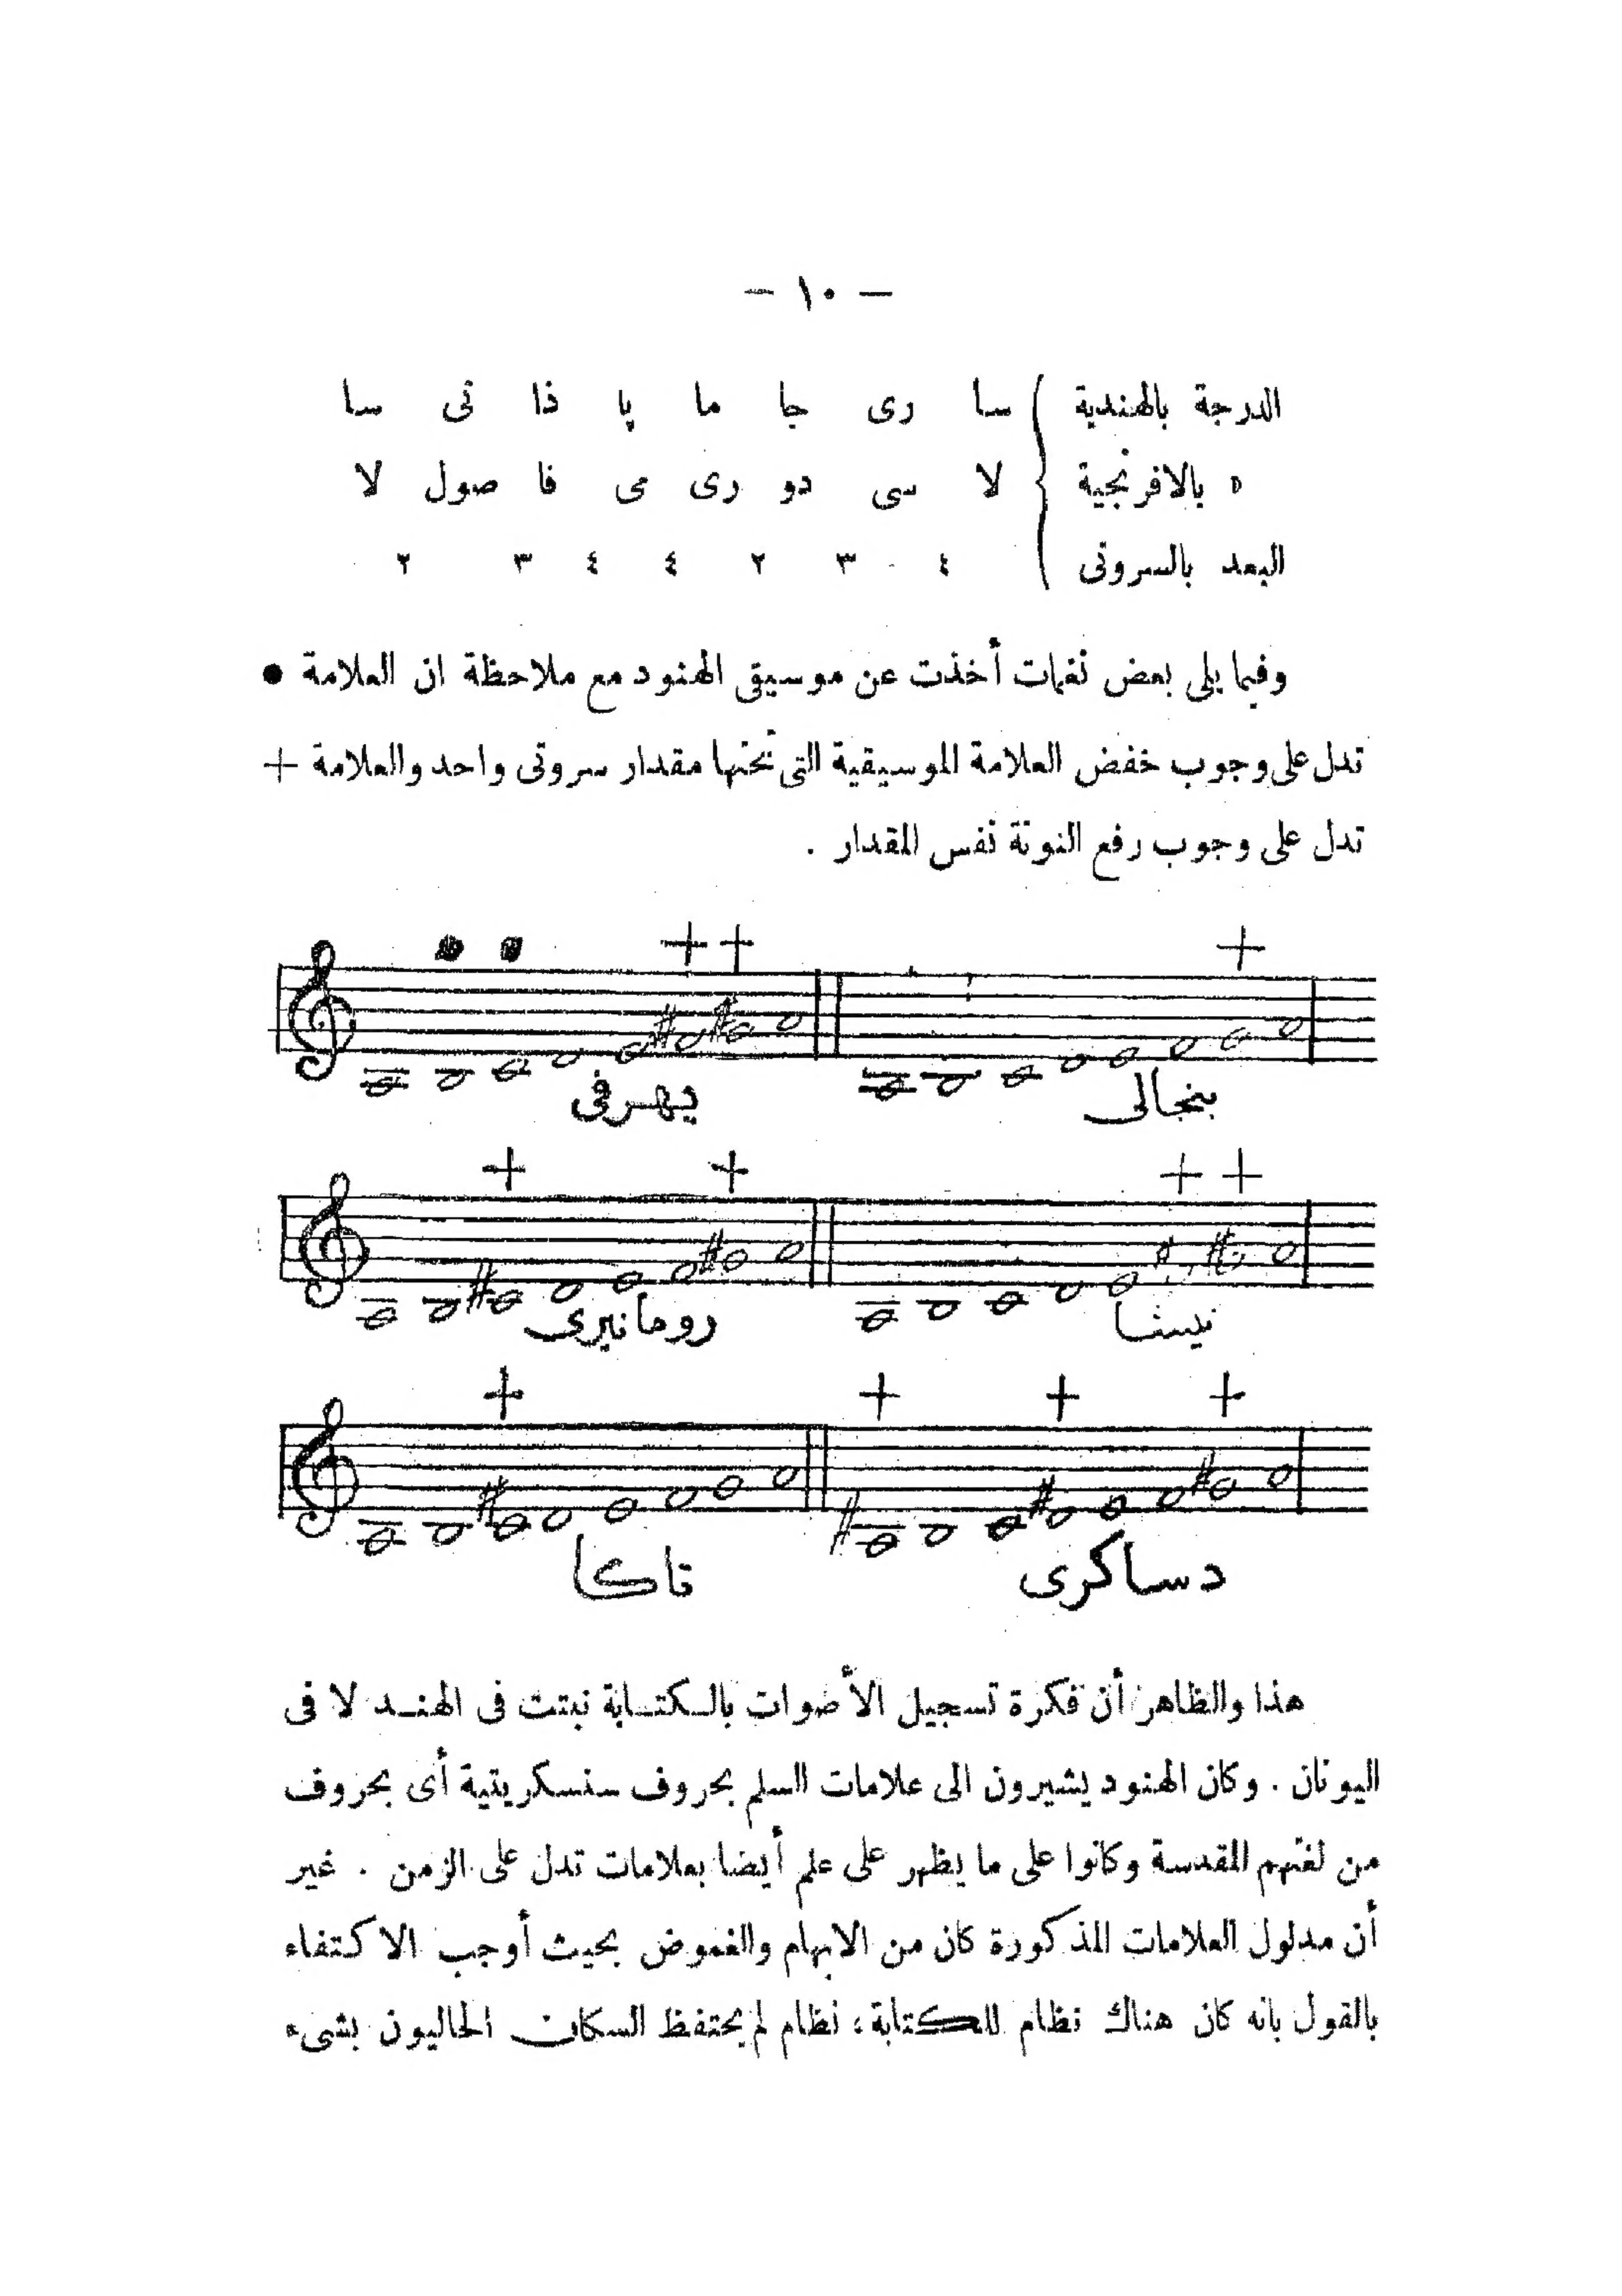 — ١٠ —
الدرجة بالهندية سا رى جا ما پا ذا نى سا
» بالافرنجية لا سى دو رى مى فا صول لا
البعد بالسروتى ٤ ٣ ٢ ٤ ٤ ٣ ٢
وفيما يلى بعض نغمات أخذت عن موسيقى الهنود مع ملاحظة ان العلامة ●
تدل على وجوب خفض العلامة الموسيقية التى تحتها مقدار سروتى واحد والعلامة +
تدل على وجوب رفع النوتة نفس المقدار .
+ + +
بنجالى
+ + + +
رومانيرى نيشا
+ + + +
تاكا دساكرى
هذا والظاهر أن فكرة تسجيل الأصوات بالكتابة نبتت فى الهند لا فى
اليونان . وكان الهنود يشيرون الى علامات السلم بحروف سنسكريتية أى بحروف
من لغتهم المقدسة وكانوا على ما يظهر على علم أيضا بعلامات تدل على الزمن . غير
أن مدلول العلامات المذكورة كان من الابهام والغموض بحيث أوجب الاكتفاء
بالقول بانه كان هناك نظام للكتابة، نظام لم يحتفظ السكان الحاليون بشىء